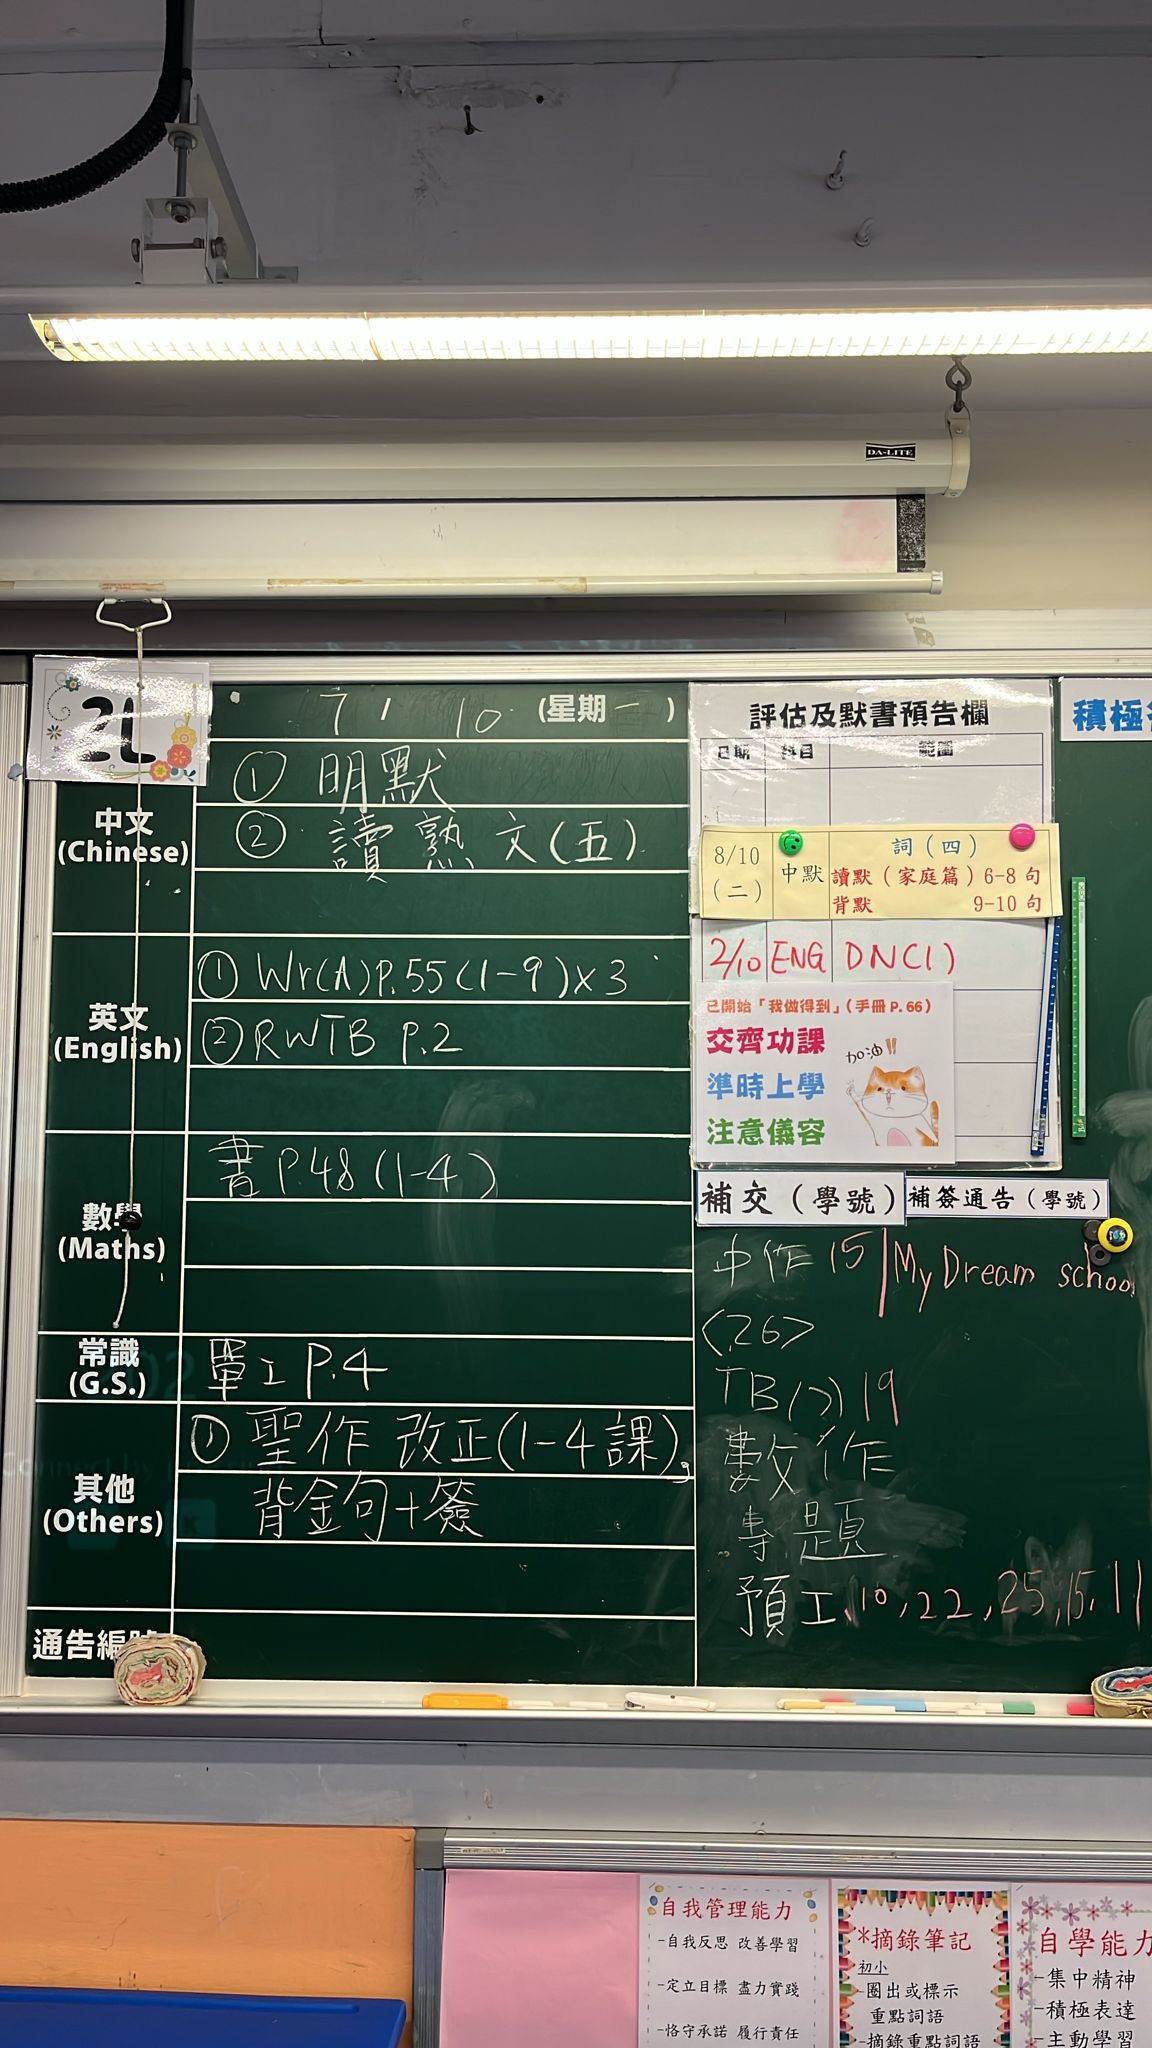 DA-LITE
2L
7 / 10 (星期一)
中文
(Chinese)
① 明默
② 讀熟文(五)
英文
(English)
① Wr(A)P.55(1-9)x3
② RWTB P.2
數學
(Maths)
書P.48(1-4)
常識
(G.S.)
單工P.4
其他
(Others)
① 聖作 改正(1-4課),
背金句+簽
通告編
評估及默書預告欄
日期 科目 範圍
8/10
(二)
中默
詞(四)
讀默(家庭篇)6-8句
背默 9-10句
2/10 ENG DN(1)
已開始「我做得到」(手冊P.66)
交齊功課
準時上學
注意儀容
加油!!
補交(學號)
補簽通告(學號)
中作 15
My Dream school
<26>
TB(2)19
數作
專題
預工.10,22,25,15,11
積極
自我管理能力
-自我反思 改善學習
-定立目標 盡力實踐
-恪守承諾 履行責任
*摘錄筆記
初小
-圈出或標示
重點詞語
-摘錄重點詞語
自學能力
-集中精神
-積極表達
-主動學習